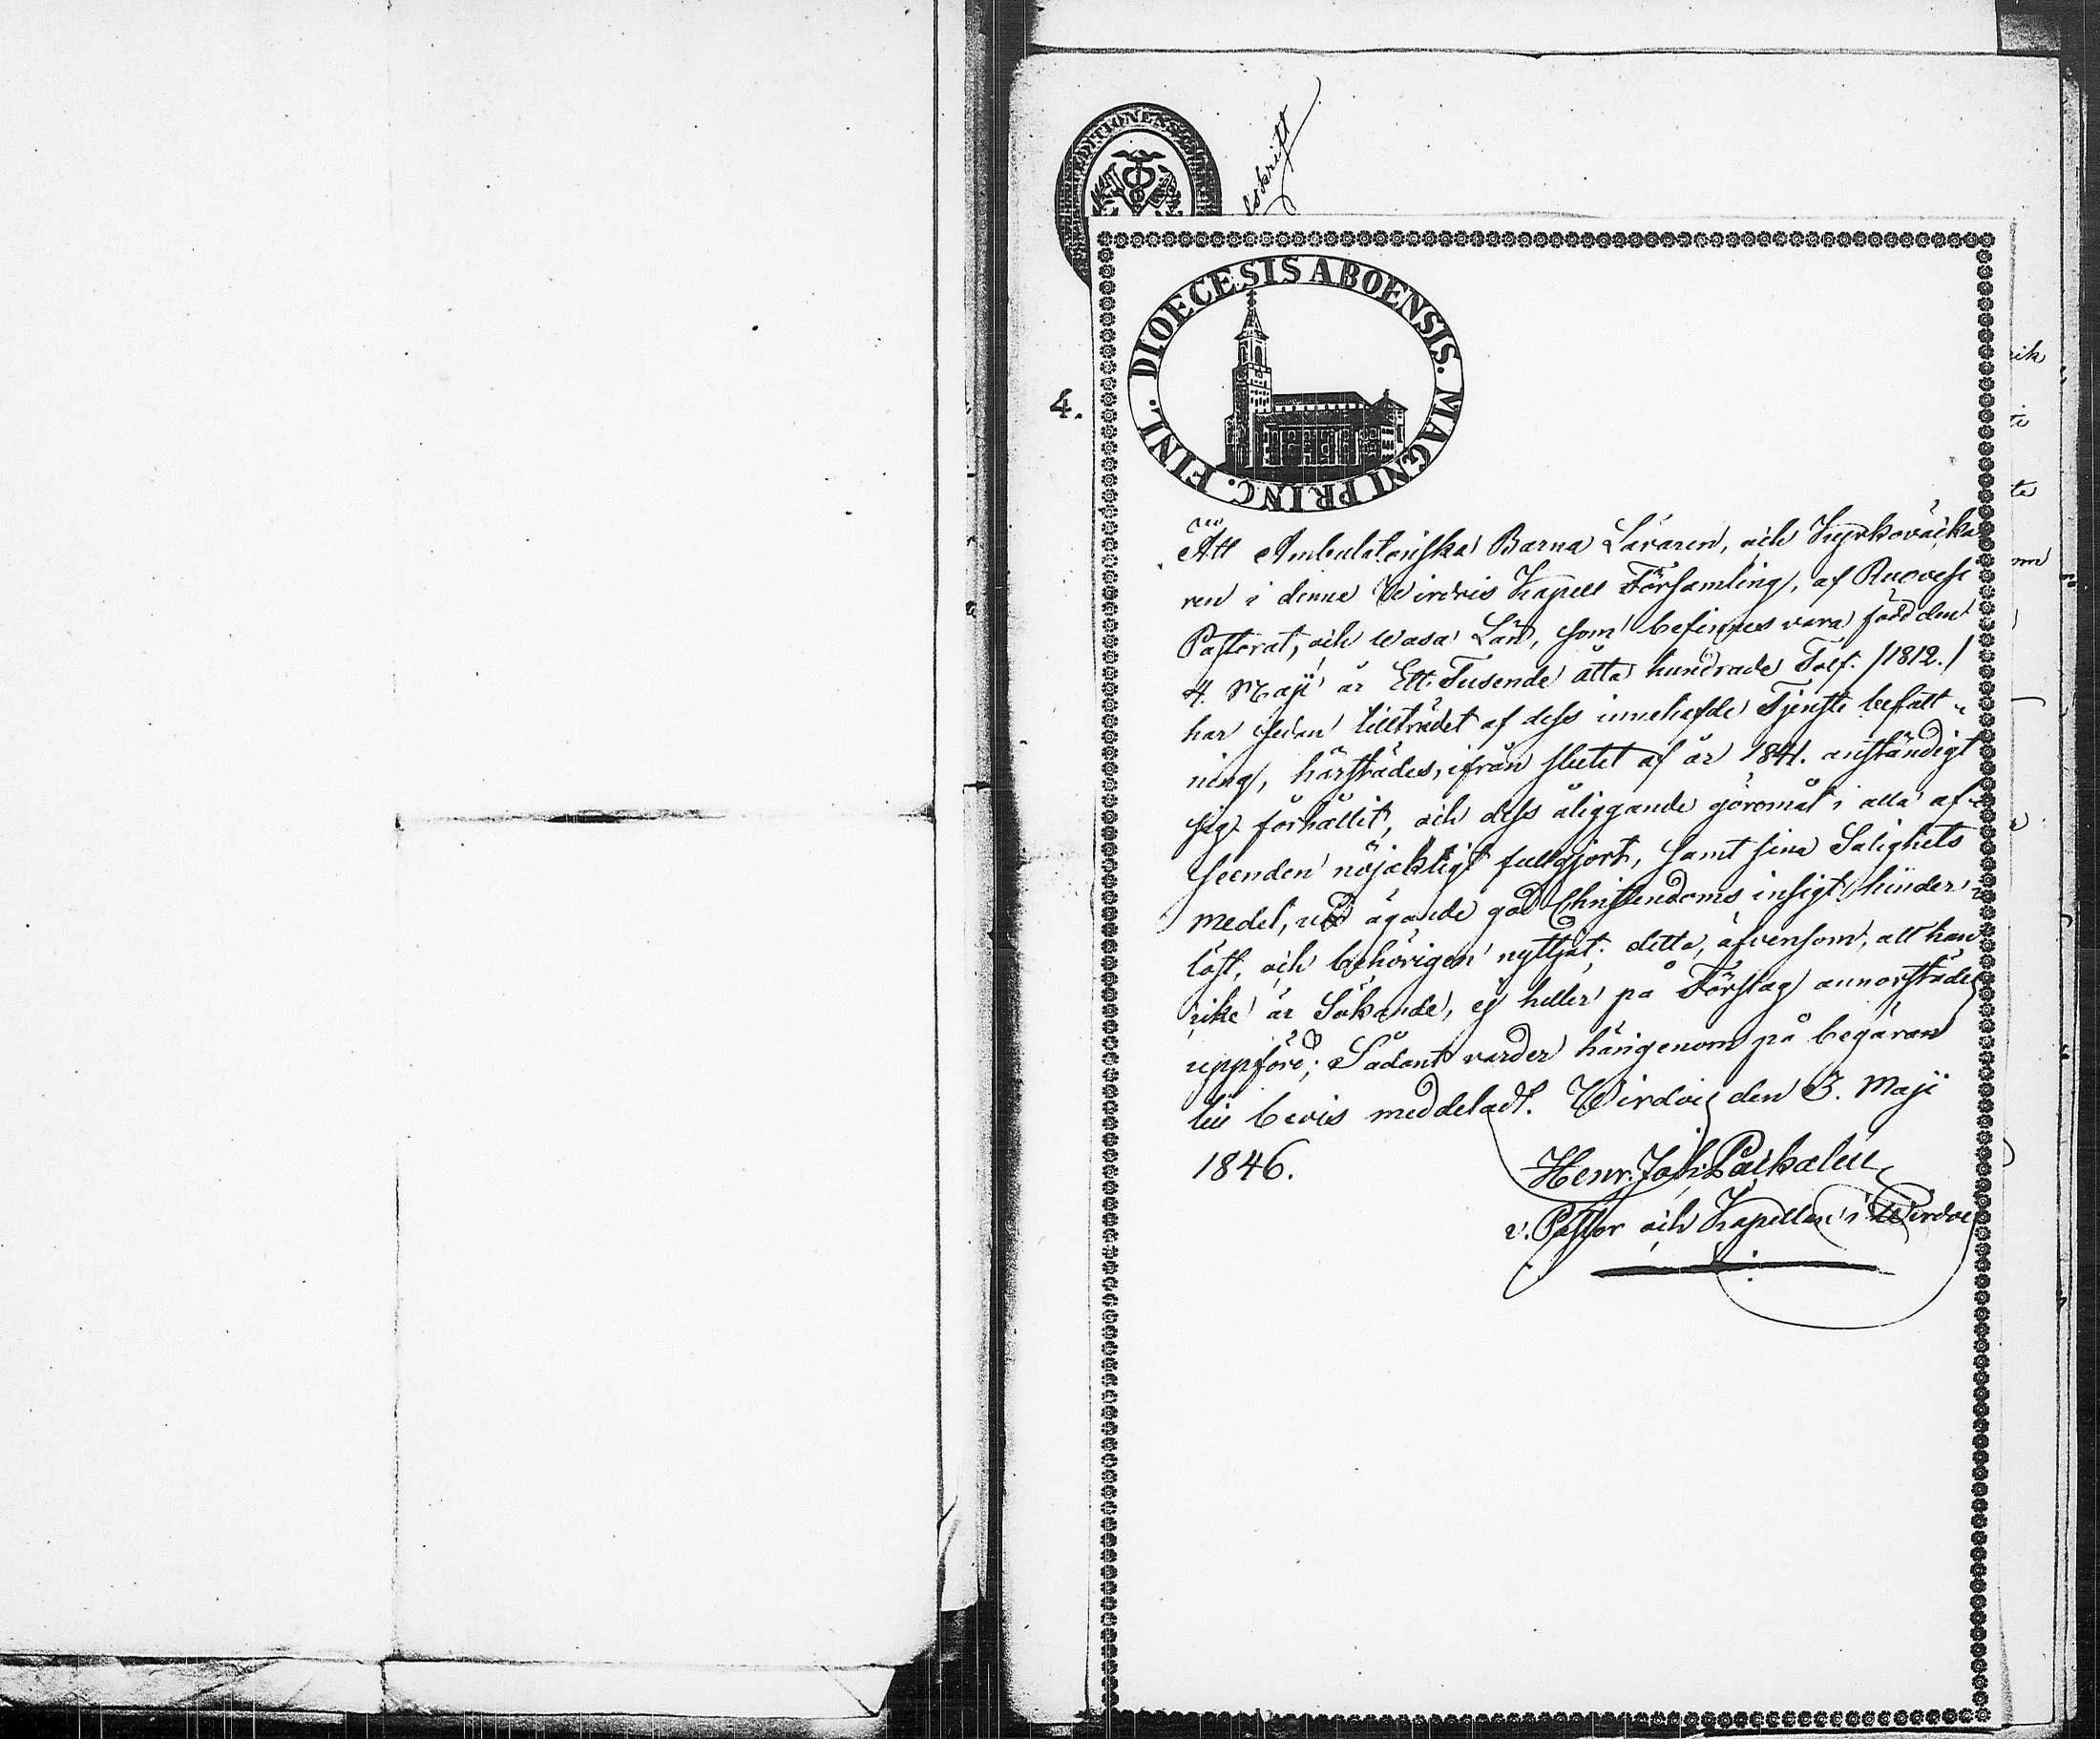 DITIONENS
lskrift
4.
DIOECESIS ABOENSIS. MAGNI PRINC. FINL.
Att Ambulatoriska Barna Läraren, och Kyrkoväcka
ren i denne Wirdois Kapell Församling, af Ruovesi
Pastorat, och Wasa Län, som befinnes vara född den
4. Maji år Ett Tusende åtta hundrade Tolf. /1812./
har sedan tillträdet af dess innehafde Tjenste befatt-
ning, härstädes, ifrån slutet af år 1841. anständigt
sig förhållit, och dess åliggande göromål i alla af-
seenden nöjacktigt fullgjort, samt sina Salighets
medel, vid ägande god Christendoms insigt hinder-
löst, och behörigen nyttjat: detta, äfvensom, att han
icke är Sökande, ej heller på Förslag annorstädes
uppförd; Sådant varder härigenom på begäran
till bevis meddeladt. Wirdois den 3. Maji
1846.
Henr. Joh:
v. Pastor och Kapellan i Wirdois